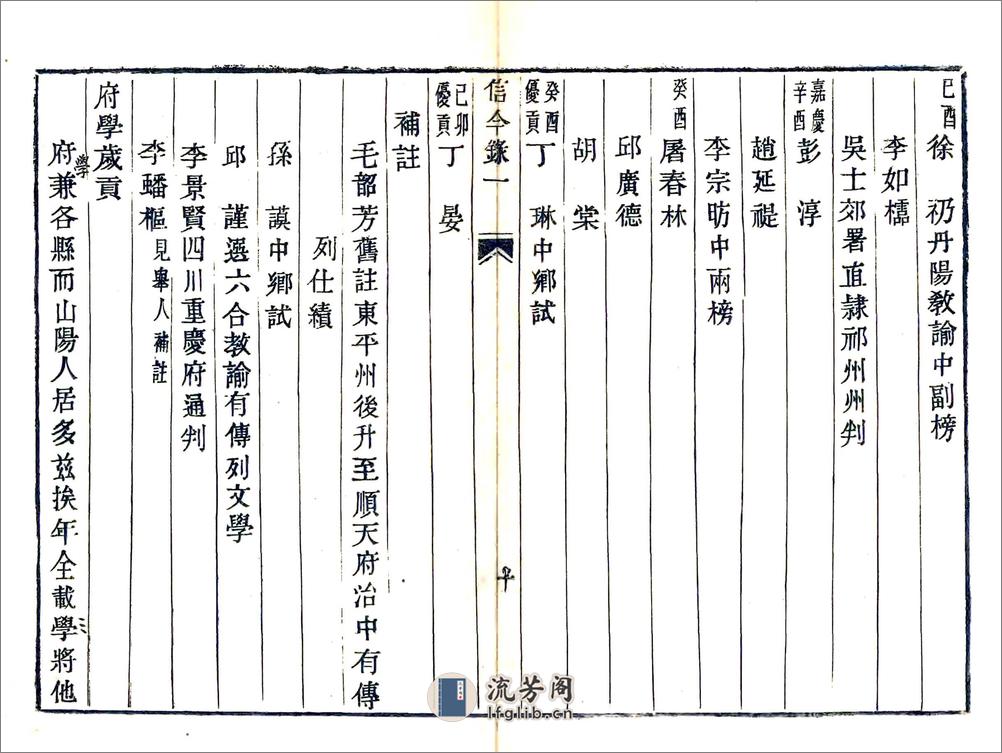 己酉徐　礽丹陽敎諭中副榜
李如櫺
吳士郊署直隸祁州州判
嘉慶辛酉彭　淳
趙延禔
李宗昉中兩榜
癸酉屠春林
邱廣德
胡　棠
癸酉優貢丁　琳中鄉試
信今錄一
己卯優貢丁　晏
補註
毛韶芳舊註東平州後升至順天府治中有傳
列仕績
孫　謨中鄉試
邱　謹選六合敎諭有傳列文學
李景賢四川重慶府通判
李蟠樞見舉人補註
府學歲貢
府學兼各縣而山陽人居多茲挨年全載學將他
流芳阁
lfglib.cn